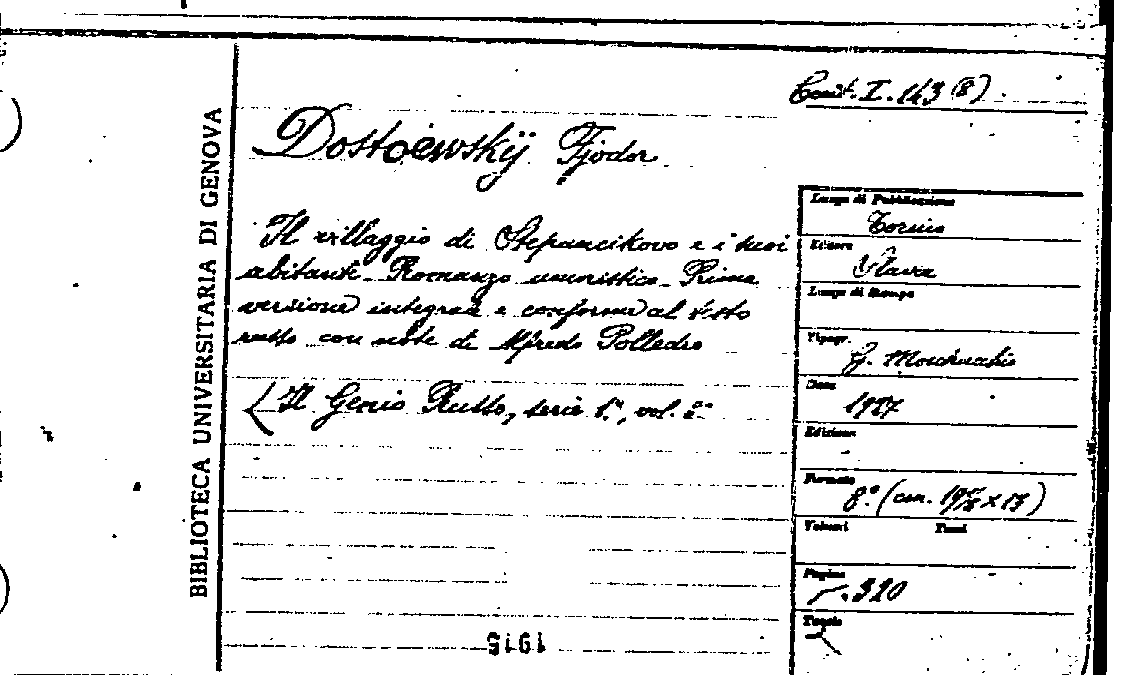 BIBLIOTECA UNIVERSITARIA DI GENOVA
Cons. I. 143 (8)
Dostoiewskij Fjodor
Il villaggio di Stepancikovo e i suoi
abitanti - Romanzo umoristico - Prima
versione integrale e conforme al testo
russo con note di Alfredo Polledro
Il Genio Russo, serie 1ª, vol. 2º
Luogo di Pubblicazione
Torino
Editore
Slavia
Luogo di Stampa
Tipogr.
Data
1927
Edizione
Formato
8º (cm. 19 x 13)
Volumi Tomi
Pagine
320
Tavole
1915